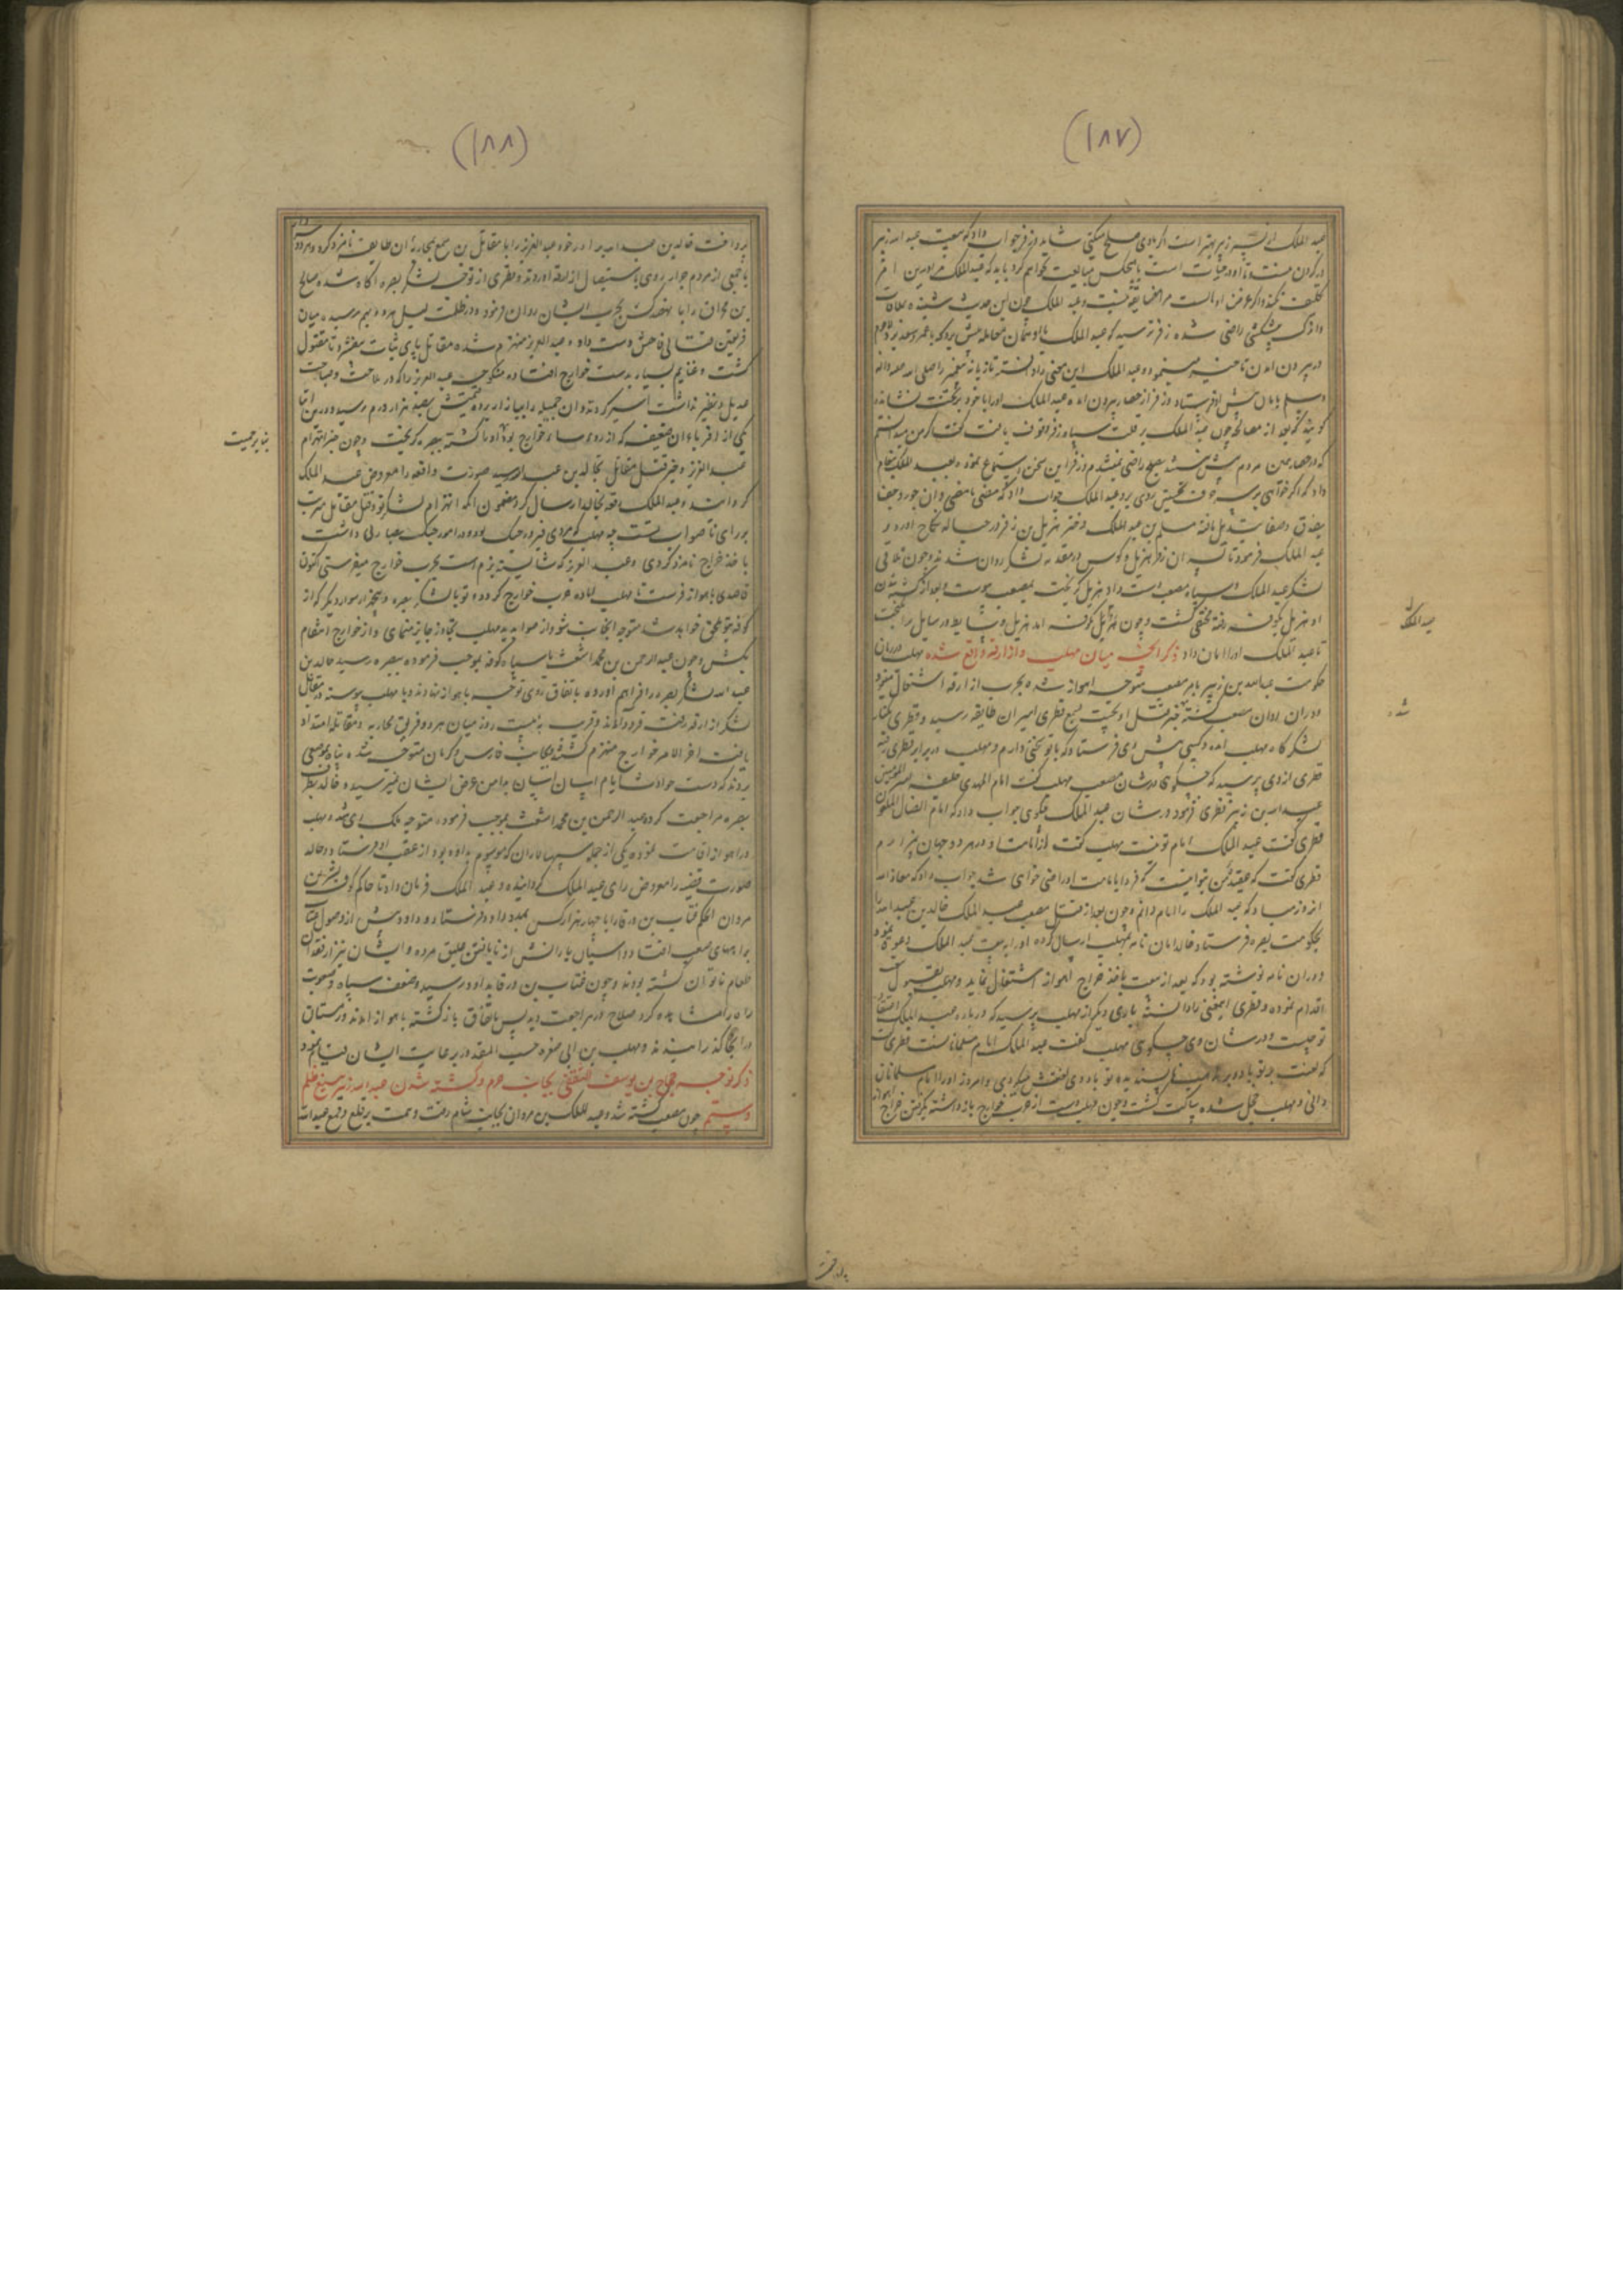 (۱۸۷)
عبد الملک پسر زبیر بهتر است اگر با وی صلح میکنی شاید زفر جواب داد که بیعت عبد الله زبیر
در گردن منست تا او در حیات است با هیچکس مبایعت نخواهم کرد باید که عبد الملک مرا درین امر
تکلیف نکند و عبد الملک چون این حدیث شنیده
راضی شده زفر ترسید که عبد الملک با او همان معامله پیش برد که با عمرو سعید
در بیرون آمدن تاخیر مینمود و عبد الملک این معنی را دانسته تازیانه پیغمبر را صلی الله علیه و اله
و سلم پیش او فرستاد و زفر از حصار بیرون آمده عبد الملک او را با خود بر تخت نشاند
گویند که بعد از مصالحه چون عبد الملک بر قلت سپاه زفر وقوف یافت گفت که من میدانستم
که در حصار همین مردم بصلح راضی نمیشدم زفر این سخن استماع نموده بعبد الملک پیغام
داد که اگر خواهی بر سر حرف نخستین رویم عبد الملک جواب داد که مضی ما مضی و ان جور و جفا
بصدق و صفا تبدیل یافته مسلم بن عبد الملک دختر هذیل بن زفر در حباله نکاح اورد و
عبد الملک فرمود تا هذیل در مقدمه لشکر روان شدند و چون تلاقی
لشکر عبد الملک و سپاه مصعب دست داد هذیل گریخت بمصعب پیوست و بعد از کشته شدن
او هذیل بکوفه رفته مختفی گشت و چون
تا عبد الملک او را امان داد ذکر میان مهلب و ازارقه واقع شده مهلب در زمان
حکومت عبد الله بن زبیر بامر مصعب متوجه اهواز شده بحرب ازارقه اشتغال مینمود
و در ان اوان مصعب کشته خبر قتل او نخست بسمع قطری امیر ان طایفه رسید و قطری بکنار
لشکرگاه مهلب آمده و کسی پیش وی فرستاد که با تو سخنی دارم و مهلب در برابر قطری رفته
قطری از وی پرسید که چه میگوئی در شان مصعب مهلب گفت امام الهدی خلیفه امیر المومنین
عبد الله بن زبیر قطری فرمود در شان عبد الملک چگوئی جواب داد که امام الضال الملعون
قطری گفت عبد الملک امام تو نیست مهلب گفت از امامت او در هر دو جهان بیزارم
قطری گفت که عقیده من چنانست که فردا بامامت او راضی خواهی شد جواب داد که معاذ الله
انروز مباد که عبد الملک را امام دانم و چون بعد از قتل مصعب عبد الملک خالد بن عبد الله را
بحکومت بصره فرستاد خالد امان نامه بمهلب ارسال کرده او را به بیعت عبد الملک دعوت نمود
و در ان نامه نوشته بود که بعد از بیعت باخذ خراج اهواز اشتغال نماید و مهلب بقبول بیعت
اقدام نموده و قطری اینمعنی را دانسته باری دیگر از مهلب پرسید که در باره عبد الملک اعتقاد
تو چیست و در شان وی چه میگوئی مهلب گفت عبد الملک امام مسلمانانست قطری گفت
که لعنت بر تو باد و بر مذهب ناپسندیده تو باد دی لعنتش میکردی و امروز او را امام مسلمانان
دانی و مهلب خجل شده ساکت گشت و چون مهلب دست از حرب خوارج بازداشته بگرفتن خراج اهواز
عبد الملک
شد
پرداخت
(۱۸۸)
پرداخت خالد بن عبد الله برادر خود عبد العزیز را با مقاتل بن مسمع بمحاربه ان طایفه نامزد کرد و
با جمعی از مردم جرار روی باستیصال ازارقه اوردند و قطری از توجه لشکر بصره اگاه شده صالح
بن مخراق را با نهصد کس بحرب ایشان روان فرمود و در ظلمت لیل هر دو بهم رسیده میان
فریقین قتالی فاحش دست داد و عبد العزیز منهزم شده مقاتل پای ثبات بیفشرد تا مقتول
گشت و غنایم بسیار بدست خوارج افتاده منکوحه عبد العزیز را که در ملاحت و صباحت
عدیل و نظیر نداشت اسیر کردند و ان جمیله را ببازار برده قیمتش بصد هزار درم رسید و درین اثنا
یکی از اقرباء ان ضعیفه که از روساء خوارج بود او را کشته ببصره گریخت و چون خبر انهزام
عبد العزیز و خبر قتل مقاتل بخالد بن عبد الله رسید صورت واقعه را معروض عبد الملک
گردانید و عبد الملک رقعه بخالد ارسال کرد مضمون انکه انهزام لشکر تو و قتل مقاتل مترتب
بر رای ناصواب تست چه مهلب که مردی فیروز جنگ بود و در امور جنگ مهارتی داشت
باخذ خراج نامزد کردی و عبد العزیز که شایسته بزم است بحرب خوارج میفرستی اکنون
قاصدی باهواز فرست تا مهلب اماده حرب خوارج گردد و تو با لشکر بصره و پنجهزار سوار دیگر که از
کوفه بتو ملحق خواهد شد متوجه انجانب شو و از صوابدید مهلب تجاوز جایز منمای و از خوارج انتقام
بکش و چون عبد الرحمن بن محمد اشعث با سپاه کوفه بموجب فرموده ببصره رسید خالد بن
عبد الله لشکر بصره را فراهم اورده باتفاق روی توجه باهواز نهادند و با مهلب پیوسته در مقابل
لشکر ازارقه رفت فرود آمدند و قرب به بیست روز میان هر دو فریق محاربه و مقاتله امتداد
یافت اخر الامر خوارج منهزم گشته بجانب فارس و کرمان متوجه شده پناه بموضعی
بردند که دست حوادث ایام بدامن عرض ایشان نمیرسید و خالد بطرف
بصره مراجعت کرده عبد الرحمن بن محمد اشعث بموجب فرموده متوجه ملک ری شد و مهلب
در اهواز اقامت نموده یکی از جمله سپهسالاران که موسوم بداود بود از عقب فرستاد و خالد
صورت قضیه را معروض رای عبد الملک گردانیده و عبد الملک فرمان داد تا حاکم کوفه بشر بن
مروان الحکم عتاب بن ورقا را با چهار هزار کس بمدد داود فرستاد و داود پیش از وصول عتاب
براههای صعب افتاد و اسپان یارانش از نایافتن علیق مرده و ایشان نیز از فقدان
طعام ناتوان گشته بودند و چون عتاب بن ورقا بداود رسید و ضعف سپاه و صعوبت
راه را مشاهده کرد صلاح در مراجعت دید پس باتفاق بازگشته باهواز آمدند و زمستان
در انجا گذرانیدند و مهلب بن ابی صفره حسب المقدور برعایت ایشان قیام نمود
ذکر توجه حجاج بن یوسف الثقفی بجانب حرم و کشته شدن عبد الله زبیر بتیغ ظلم
و ستم چون مصعب کشته شد و عبد الملک بن مروان بجانب شام رفت و همت بر قلع و قمع عبد الله
بنابر حمیت